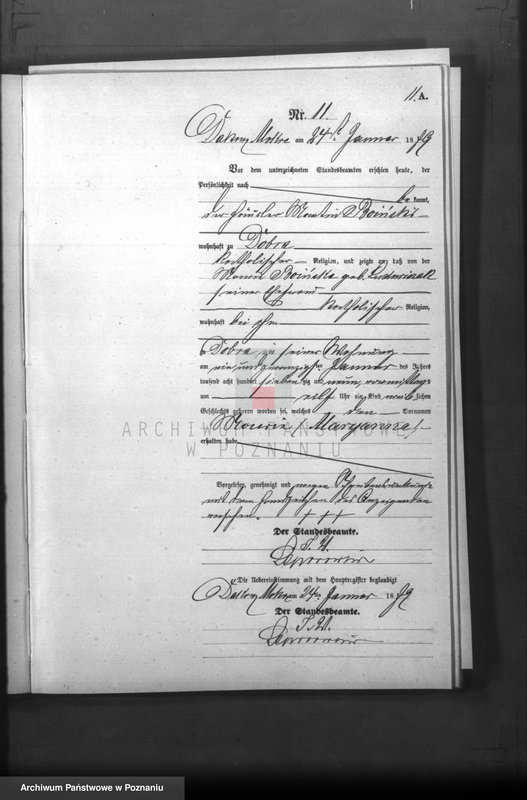 11 A.
Nr. 11.
am 24t Januar 1879
Vor dem unterzeichneten Standesbeamten erschien heute, der
Persönlichkeit nach
be kannt,
der Häusler Martin
wohnhaft zu Dobra
katholischer Religion, und zeigte an, daß von der
geb. Ludwiczak
seiner Ehefrau
katholischer Religion,
wohnhaft bei ihm
zu Dobra in seiner Wohnung
am ein und zwanzigsten Januar des Jahres
tausend acht hundert sieben zig und neun, vormittags
um eilf Uhr ein Kind weib lichen
Geschlechts geboren worden sei, welches den Vornamen
(Maryanna)
erhalten habe
Vorgelesen, genehmigt und wegen
mit dem Handzeichen des Anzeigenden
versehen. + + +
Der Standesbeamte.
Die Uebereinstimmung mit dem Hauptregister beglaubigt
am 24ten Januar 1879
Der Standesbeamte.
ARCHIWUM PAŃSTWOWE
W POZNANIU
Archiwum Państwowe w Poznaniu